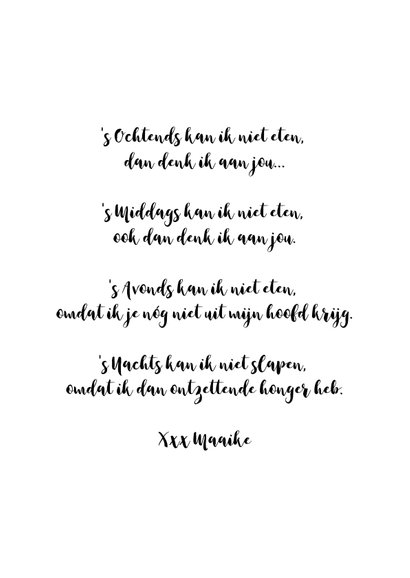 's Ochtends kan ik niet eten,
dan denk ik aan jou...
's Middags kan ik niet eten,
ook dan denk ik aan jou.
's Avonds kan ik niet eten,
omdat ik je nóg niet uit mijn hoofd krijg.
's Nachts kan ik niet slapen,
omdat ik dan ontzettende honger heb.
Xxx Maaike